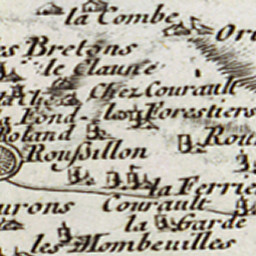 la Combe
es Bretons
le Clauné
Chez Couraült
s Fond
les Forestiers
Roland
Roußillon
la Ferriè
urons Courault
la Garde
les Mombeuilles